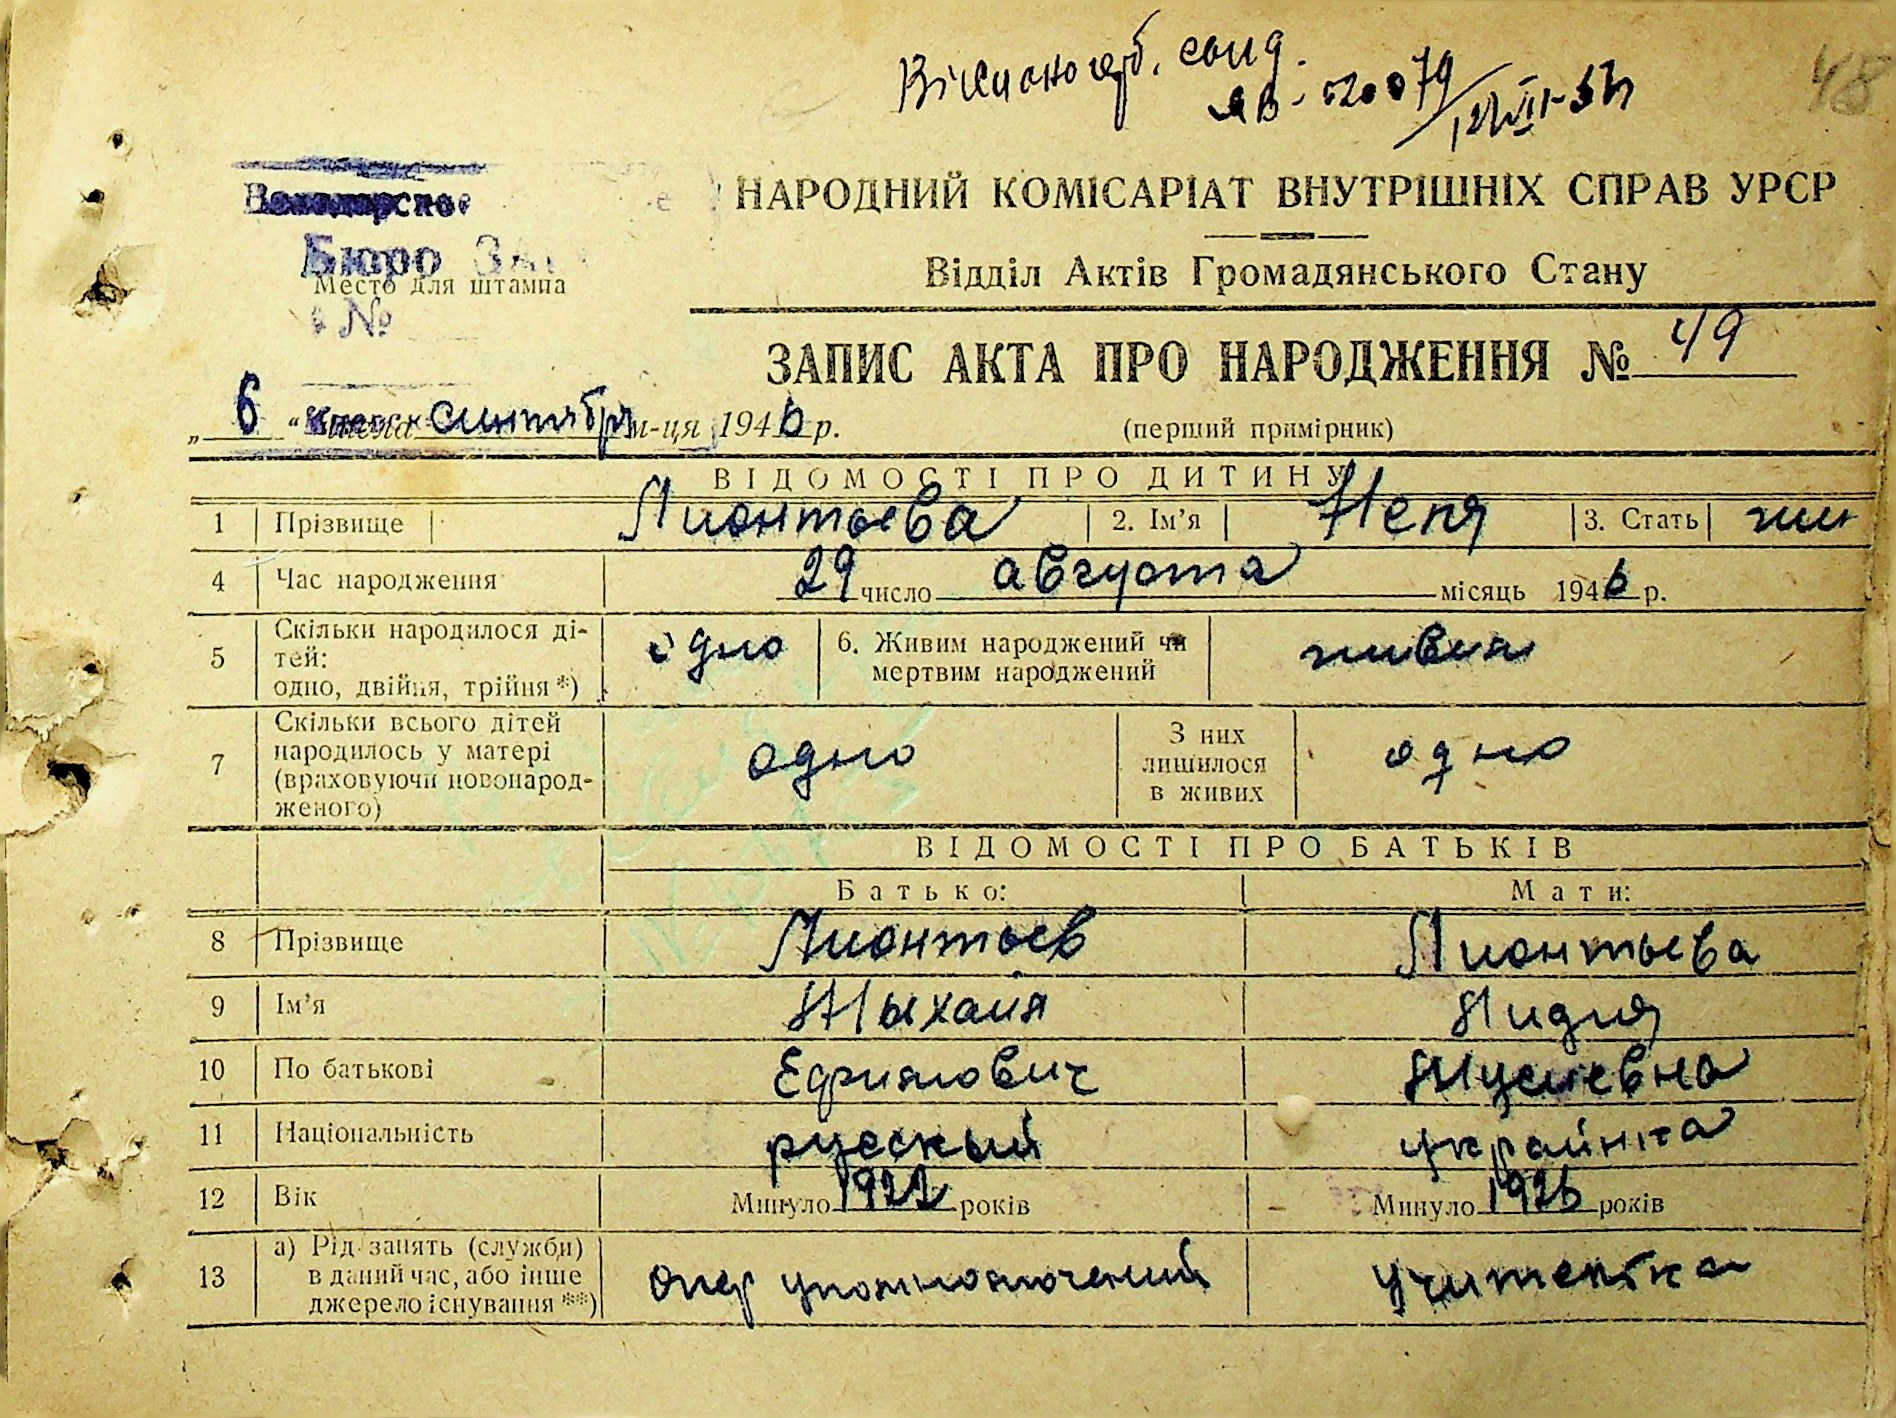 48
ЯВ-020079
Володарское
НАРОДНИЙ КОМІСАРІАТ ВНУТРІШНІХ СПРАВ УРСР
Бюро ЗАГС
Место для штампа
№
Відділ Актів Громадянського Стану
ЗАПИС АКТА ПРО НАРОДЖЕННЯ № 49
„ 6 “ числа сентября м-ця 1946 р.
(перший примірник)
ВІДОМОСТІ ПРО ДИТИНУ
1 Прізвище Лионтьева 2. Ім’я Неля 3. Стать жин
4 Час народження 29 число августа місяць 1946 р.
5 Скільки народилося ді-
тей:
одно, двійня, трійня *) одно 6. Живим народжений чи
мертвим народжений живим
7 Скільки всього дітей
народилось у матері
(враховуючи новонарод-
женого) одно З них
лишилося
в живих одно
ВІДОМОСТІ ПРО БАТЬКІВ
Батько: Мати:
8 Прізвище Лионтьев Лионтьева
9 Ім’я Мыхаил Лидия
10 По батькові Ефимович
11 Національність русский украинка
12 Вік Минуло 1922 років Минуло 1926 років
13 а) Рід занять (служби)
в даний час, або інше
джерело існування **) Опер упомномоченый учителька